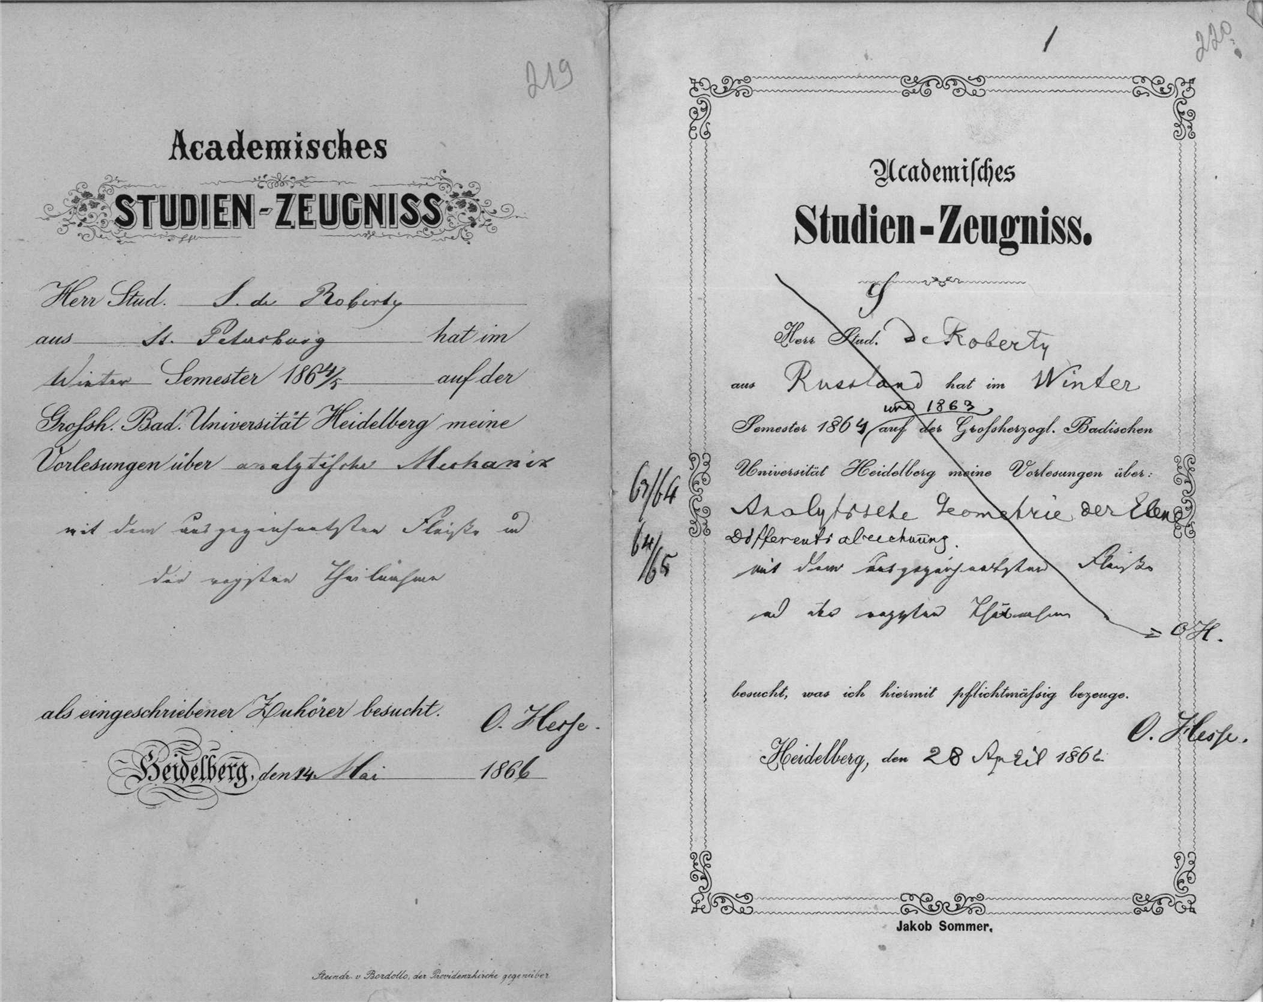 219
Academisches
STUDIEN-ZEUGNISS
Herr Stud. S. de Roberty
aus St. Petersburg hat im
Winter Semester 1864/5 auf der
Grossh. Bad. Universität Heidelberg meine
Vorlesungen über analytische Mechanik
mit dem ausgezeichnetsten Fleiße und
der regsten Theilnahme
als eingeschriebener Zuhörer besucht.
O. Hesse.
Heidelberg, den 14 Mai 1866
Steindr. v. Bordollo, der Providenzkirche gegenüber
1
220
Academisches
Studien-Zeugniss.
Herr Stud. De Roberty
aus Russland hat im Winter
und 1863
Semester 1864 auf der Grossherzogl. Badischen
Universität Heidelberg meine Vorlesungen über:
63/64 Analytische Geometrie der Ebene
64/65 Differentialrechnung.
mit dem ausgezeichnetsten Fleiße
und der regsten Theilnahme
O H.
besucht, was ich hiermit pflichtmässig bezeuge.
O. Hesse.
Heidelberg, den 28 April 1866
Jakob Sommer.